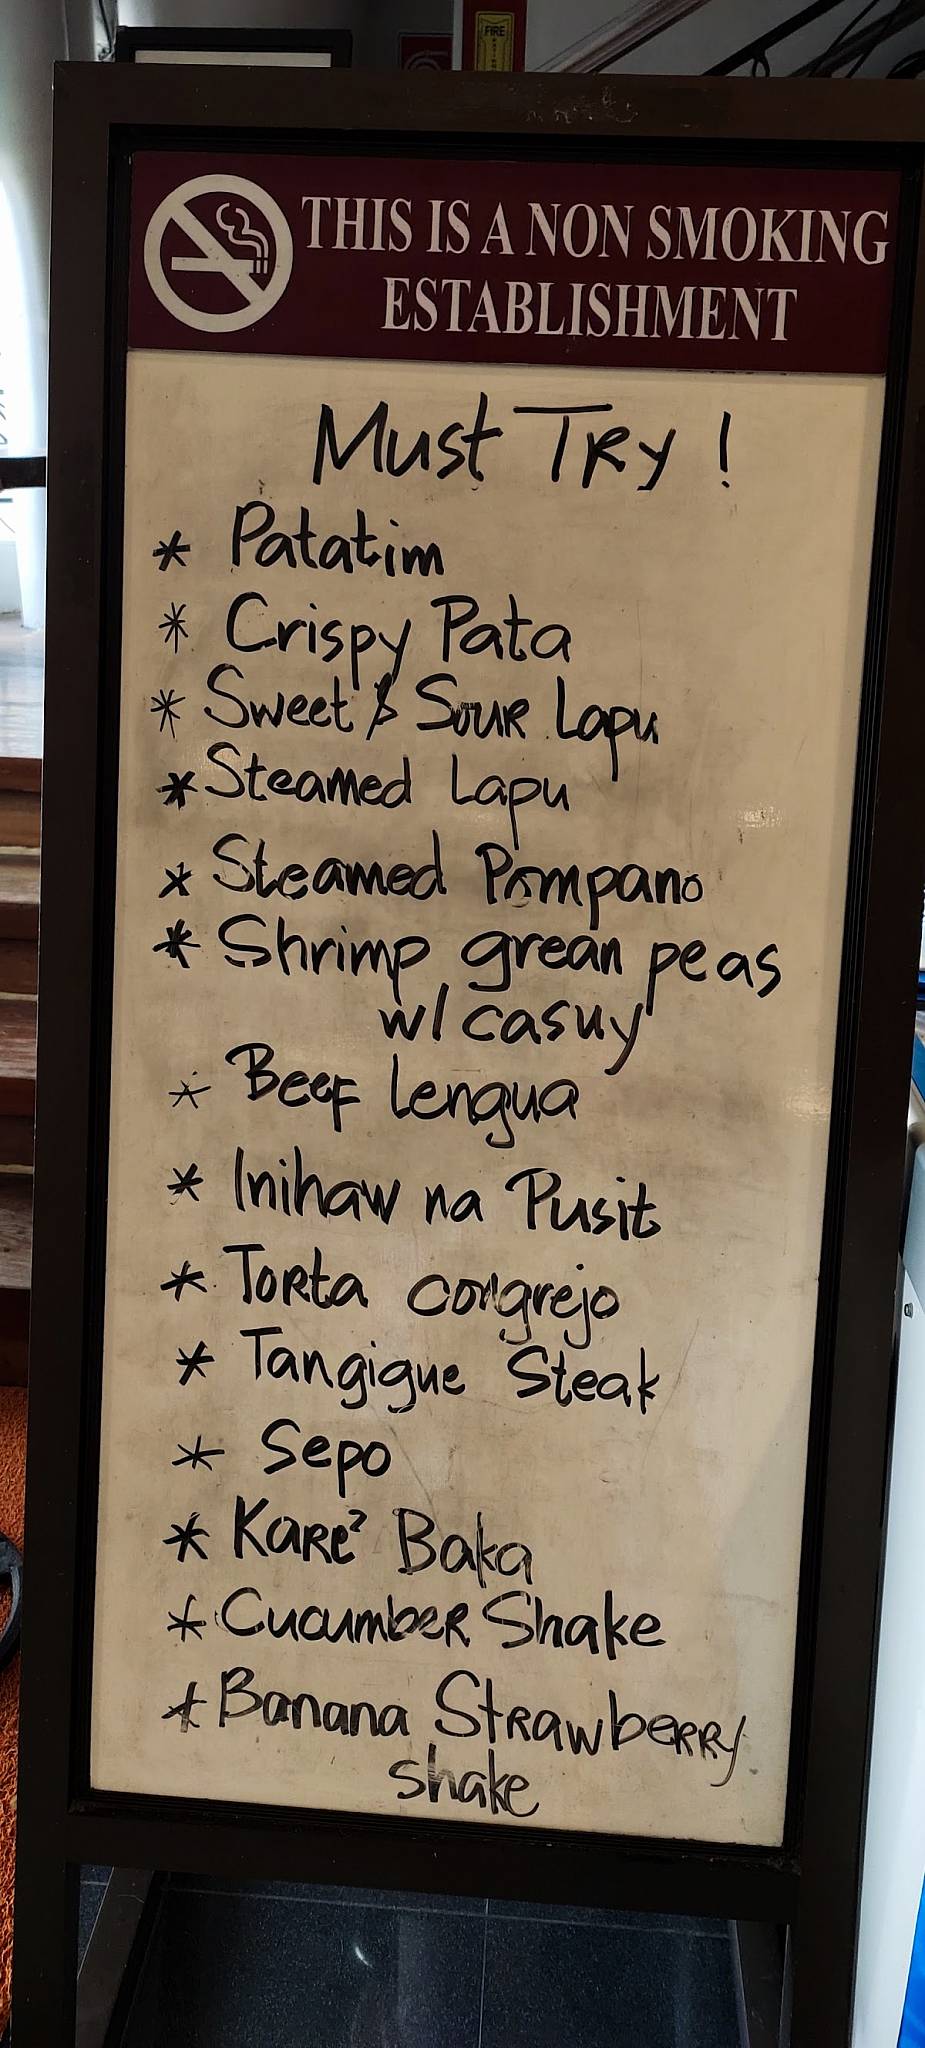 FIRE
THIS IS A NON SMOKING
ESTABLISHMENT
Must TRy !
* Patatim
* Crispy Pata
* Sweet & SOUR Lapu
* Steamed Lapu
* Steamed Pompano
* Shrimp grean peas
w/ casuy
* Beef lengua
* Inihaw na Pusit
* TORta congrejo
* Tangigue Steak
* Sepo
* KaRe² Baka
* CucumbeR Shake
* Banana StRawbeRRy
shake